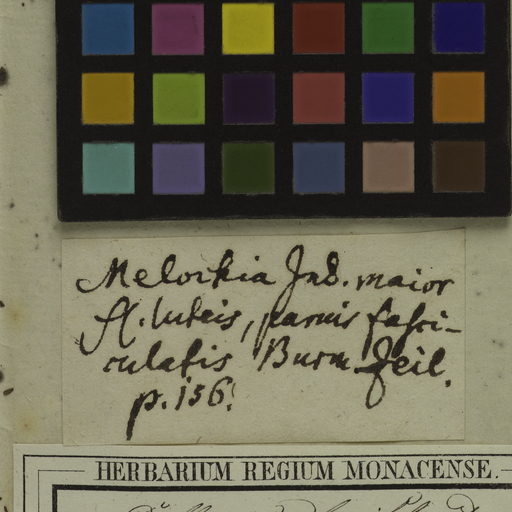 Melochia Ind. maior
fl. luteis, parvis fasci-
culatis Burm Zeil.
p. 156.
HERBARIUM REGIUM MONACENSE.